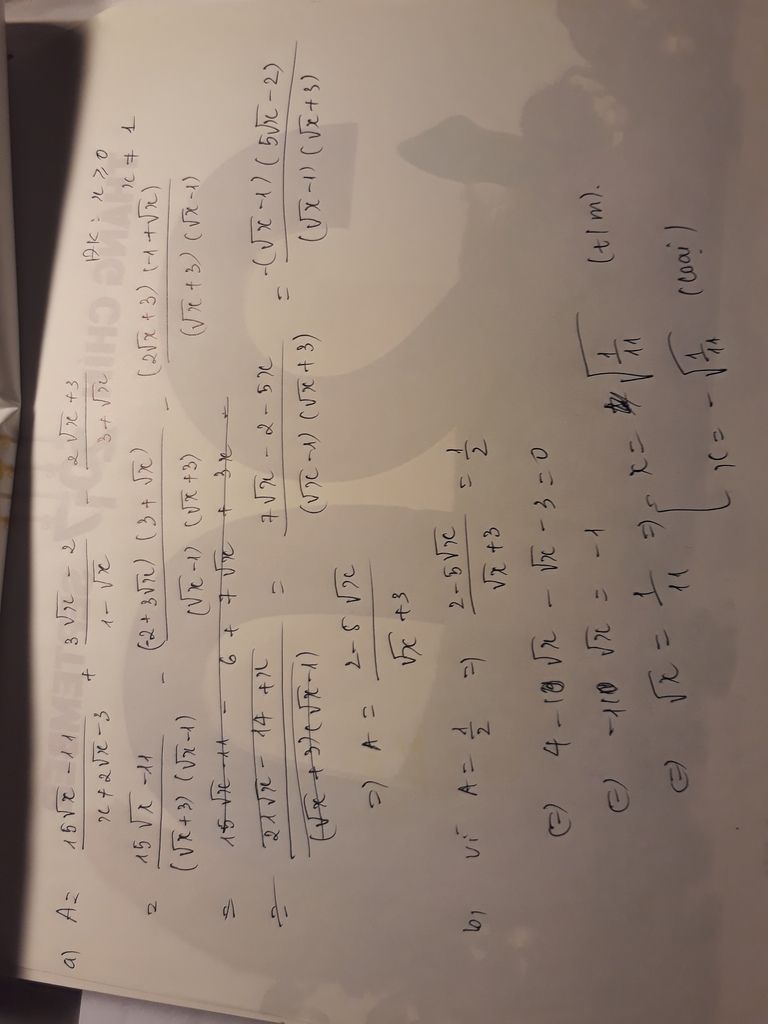 a) A = (15√x - 11)/(x + 2√x - 3) + (3√x - 2)/(1 - √x) - (2√x + 3)/(3 + √x) ĐK: x ≥ 0
x ≠ 1
= (15√x - 11)/((√x + 3)(√x - 1)) - ((-2 + 3√x)(3 + √x))/((√x - 1)(√x + 3)) - ((2√x + 3)(-1 + √x))/((√x + 3)(√x - 1))
= 15√x - 11 - 6 + 7√x + 3x +
= (21√x - 14 + x)/((√x + 3)(√x - 1)) = (7√x - 2 - 5x)/((√x - 1)(√x + 3)) = (-(√x - 1)(5√x - 2))/((√x - 1)(√x + 3))
=) A = (2 - 5√x)/(√x + 3)
b) Vì A = 1/2 =) (2 - 5√x)/(√x + 3) = 1/2
(=) 4 - 10√x - √x - 3 = 0
(=) -11√x = -1
(=) √x = 1/11 =) [ x = √(1/11) (t/m).
x = -√(1/11) (loại)